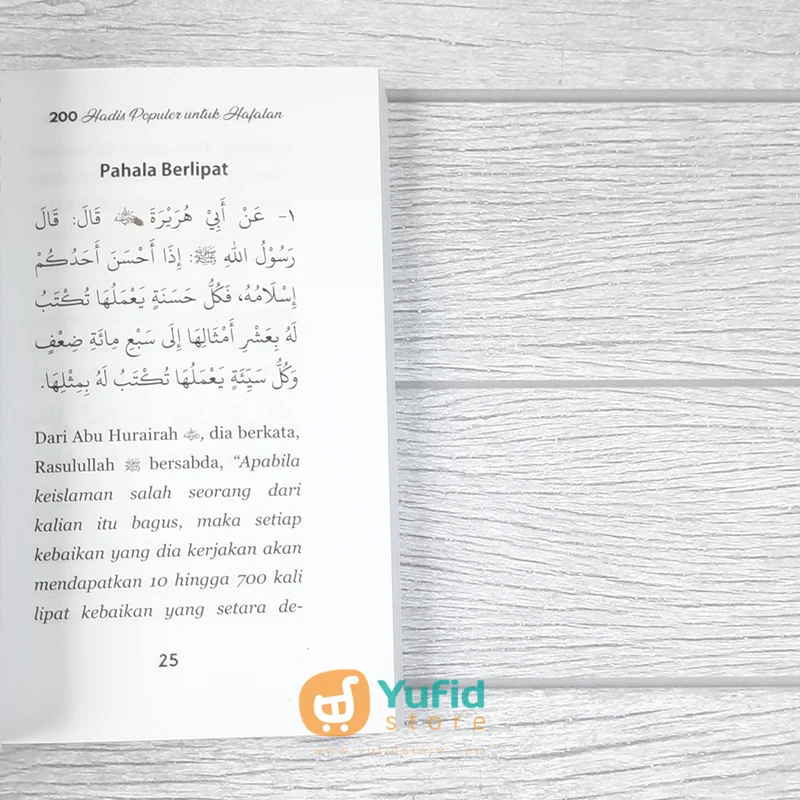 200 Hadis Populer untuk Hafalan
Pahala Berlipat
١- عَنْ أَبِيْ هُرَيْرَةَ ﵁ قَالَ: قَالَ
رَسُوْلُ اللهِ ﷺ: إِذَا أَحْسَنَ أَحَدُكُمْ
إِسْلَامُهُ، فَكُلُّ حَسَنَةٍ يَعْمَلُهَا تُكْتَبُ
لَهُ بِعَشْرِ أَمْثَالِهَا إِلَى سَبْعِ مِائَةِ ضِعْفٍ
وَكُلُّ سَيِّئَةٍ يَعْمَلُهَا تُكْتَبُ لَهُ بِمِثْلِهَا.
Dari Abu Hurairah ﵁, dia berkata,
Rasulullah ﷺ bersabda, “Apabila
keislaman salah seorang dari
kalian itu bagus, maka setiap
kebaikan yang dia kerjakan akan
mendapatkan 10 hingga 700 kali
lipat kebaikan yang setara de-
25
Yufid
store
www.yufidstore.com